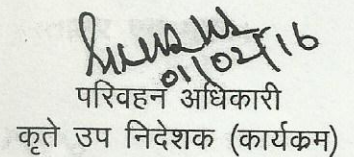 01/02/16
परिवहन अधिकारी
कृते उप निदेशक (कार्यक्रम)